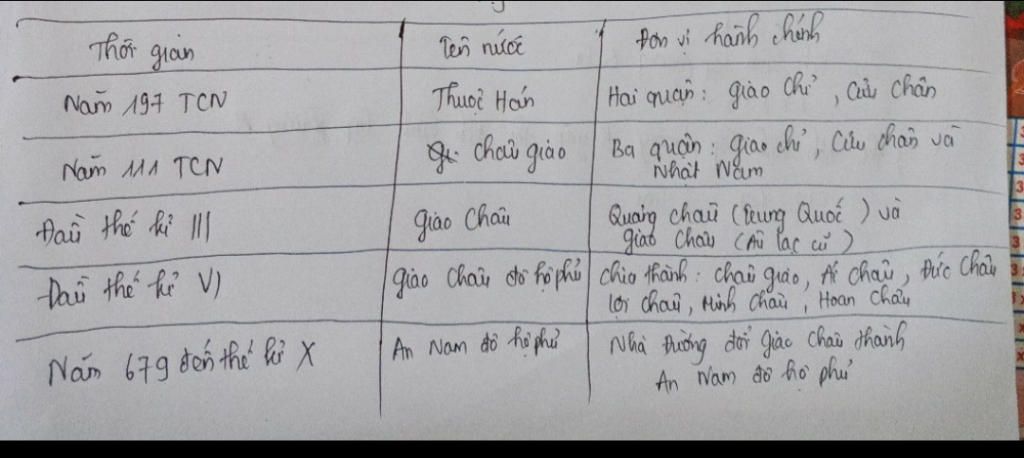 Thời gian
Tên nước
Đơn vị hành chính
Năm 197 TCN
Thuộc Hán
Hai quận: giao chỉ, Cửu Chân
Năm 111 TCN
Châu giao
Ba quận: giao chỉ, Cửu chân và
Nhật Nam
Đầu thế kỉ III
giao Châu
Quảng châu (Trung Quốc) và
giao Châu (Âu lạc cũ)
Đầu thế kỉ VI
giao Châu đô hộ phủ
chia thành: châu giao, Ái châu, Đức Châu
lợi châu, Minh châu, Hoan châu
Năm 679 đến thế kỉ X
An Nam đô hộ phủ
Nhà Đường đổi giao châu thành
An Nam đô hộ phủ